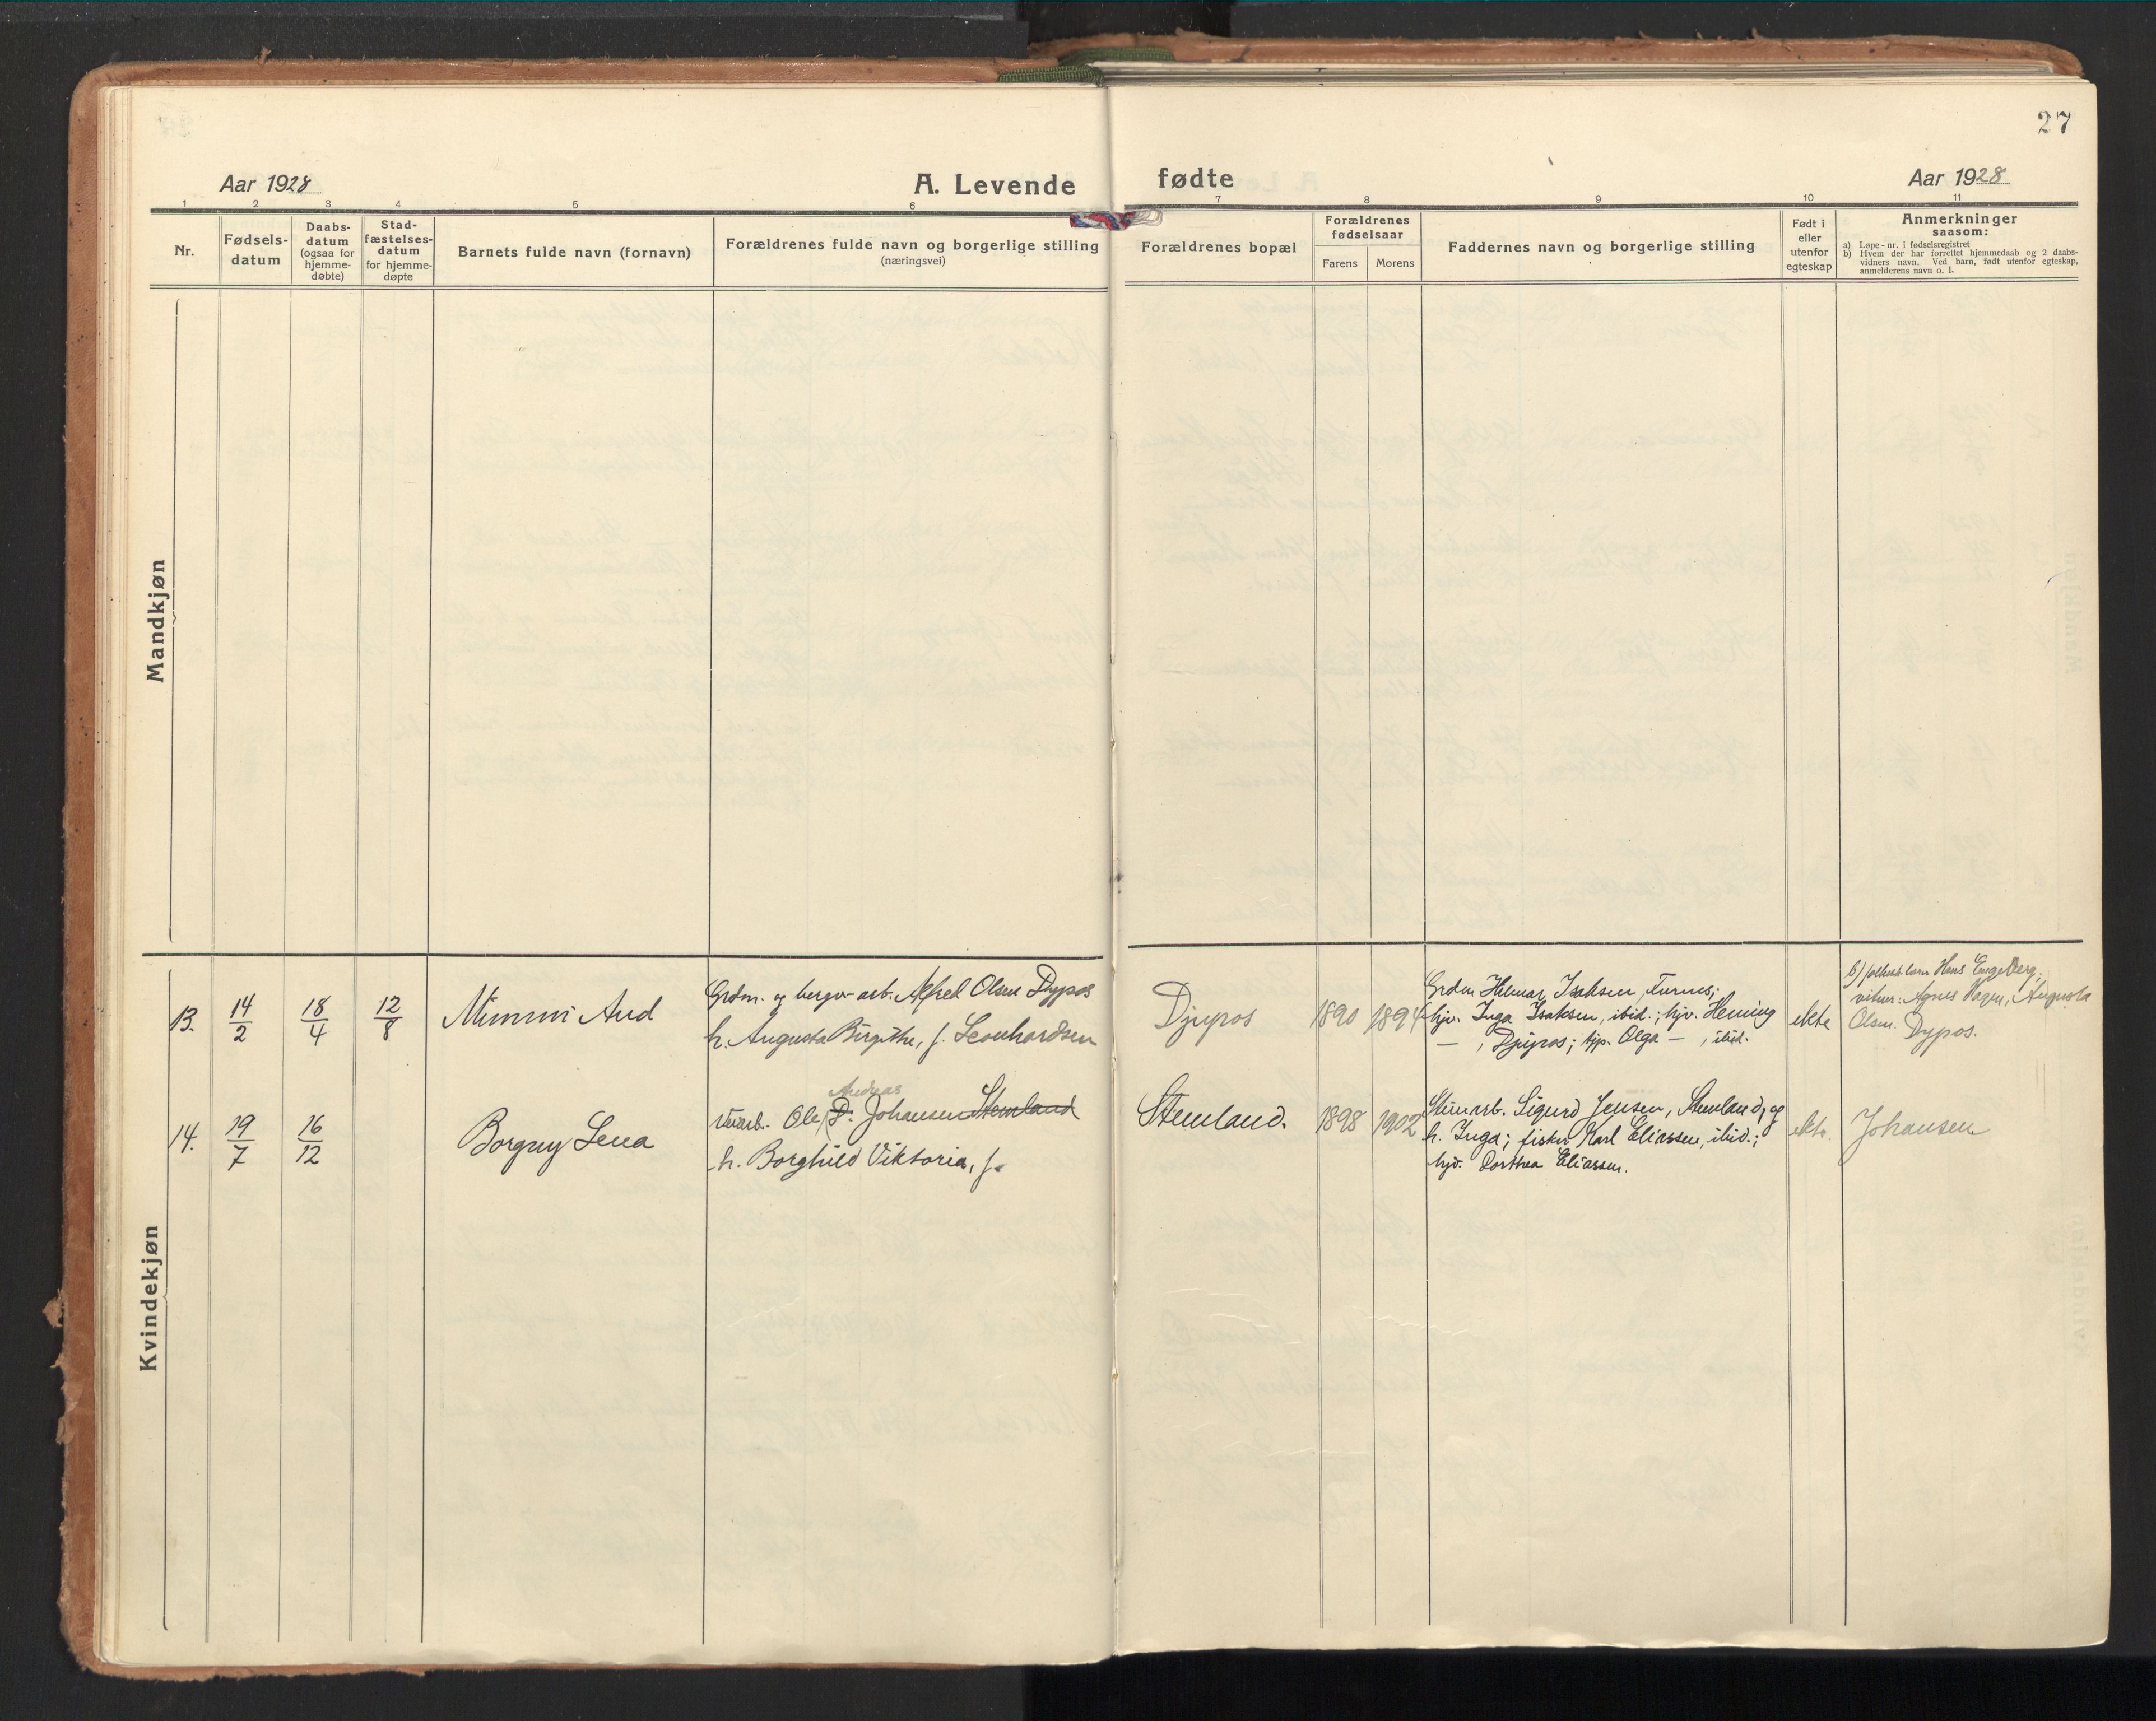 27
Aar 1928
A. Levende fødte
Aar 1928
1 2 3 4 5 6 7 8 9 10 11
Nr.
Fødsels-
datum
Daabs-
datum
(ogsaa for
hjemme-
døbte)
Stad-
fæstelses-
datum
for hjemme-
døpte
Barnets fulde navn (fornavn)
Forældrenes fulde navn og borgerlige stilling
(næringsvei)
Forældrenes bopæl
Forældrenes
fødselsaar
Farens Morens
Faddernes navn og borgerlige stilling
Født i
eller
utenfor
egteskap
Anmerkninger
saasom:
a) Løpe-nr. i fødselsregistret
b) Hvem der har forrettet hjemmedaab og 2 daabs-
vidners navn. Ved barn, født utenfor egteskap,
anmelderens navn o. l.
Mandkjøn
Kvindekjøn
13.
14/2
18/4
12/8
Mimmi Aud
Grdm. og bergv-arb. Alfred Olsen Dypos
h. Augusta Birgithe, f. Leonhardsen
Djupos
1890 1894
Grdm Hilmar Isaksen, Furnes;
hjv. Inga Isaksen, ibid.; hjv. Heming
— , Djupos; tjp. Olga — , ibid.
ekte
b) Hans Engeberg,
vitner: Agnes Hagen, Augusta
Olsen. Dypos.
14.
19/7
16/12
Borgny Lena
Andreas
Ole D. Johansen Stemland
h. Borghild Viktoria, f.
Stemland.
1898 1902
Sigurd Jensen, Stemland, og
h. Inga; fisker Karl Eliassen, ibid.;
hjv. Dorthea Eliassen.
ekte.
Johansen